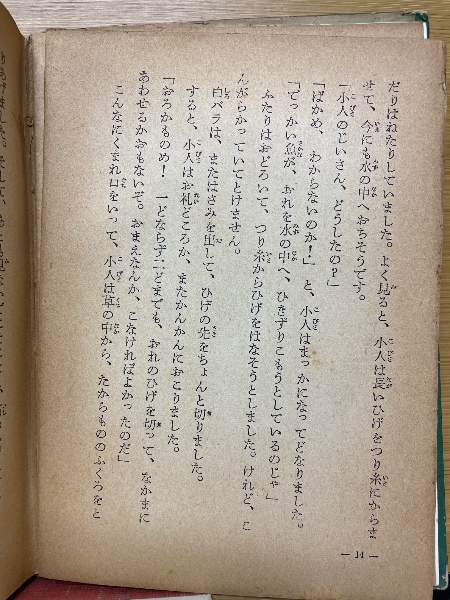 だりはねたりしていました。よく見ると、小人は長いひげをつり糸にからま
せて、今にも水の中へおちそうです。
「小人のじいさん、どうしたの？」
「ばかめ、わからないのか！」と、小人はまっかになってどなりました。
「でっかい魚が、おれを水の中へ、ひきずりこもうとしているのじゃ」
ふたりはおどろいて、つり糸からひげをはなそうとしました。けれど、こ
んがらかっていてとけません。
白バラは、またはさみを出して、ひげの先をちょんと切りました。
すると、小人はお礼どころか、またかんかんにおこりました。
「おろかものめ！　一どならず二どまでも、おれのひげを切って、なかまに
あわせるかおもないぞ。おまえなんか、こなければよかったのだ」
こんなにくまれ口をいって、小人は草の中から、たからもののふくろをと
— 14 —